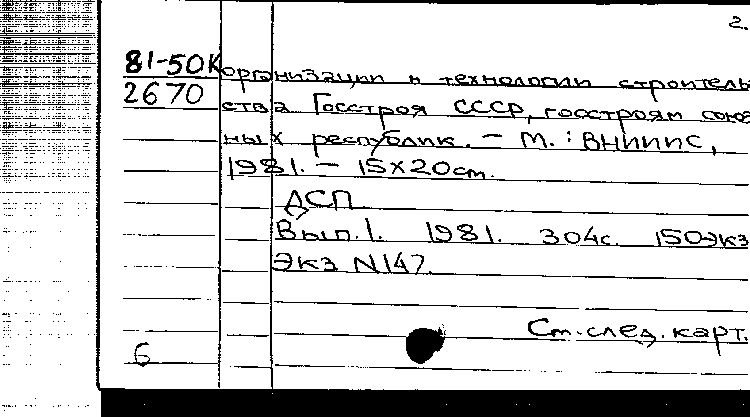 2.
81-50К организации и технологии строитель
2670 ства Госстроя СССР, госстроям союз
ных республик. – М. : ВНИИИС,
1981. – 15×20см.
ДСП
Вып. 1. 1981. 304с. 150экз
Экз N147.
См. след. карт.
6